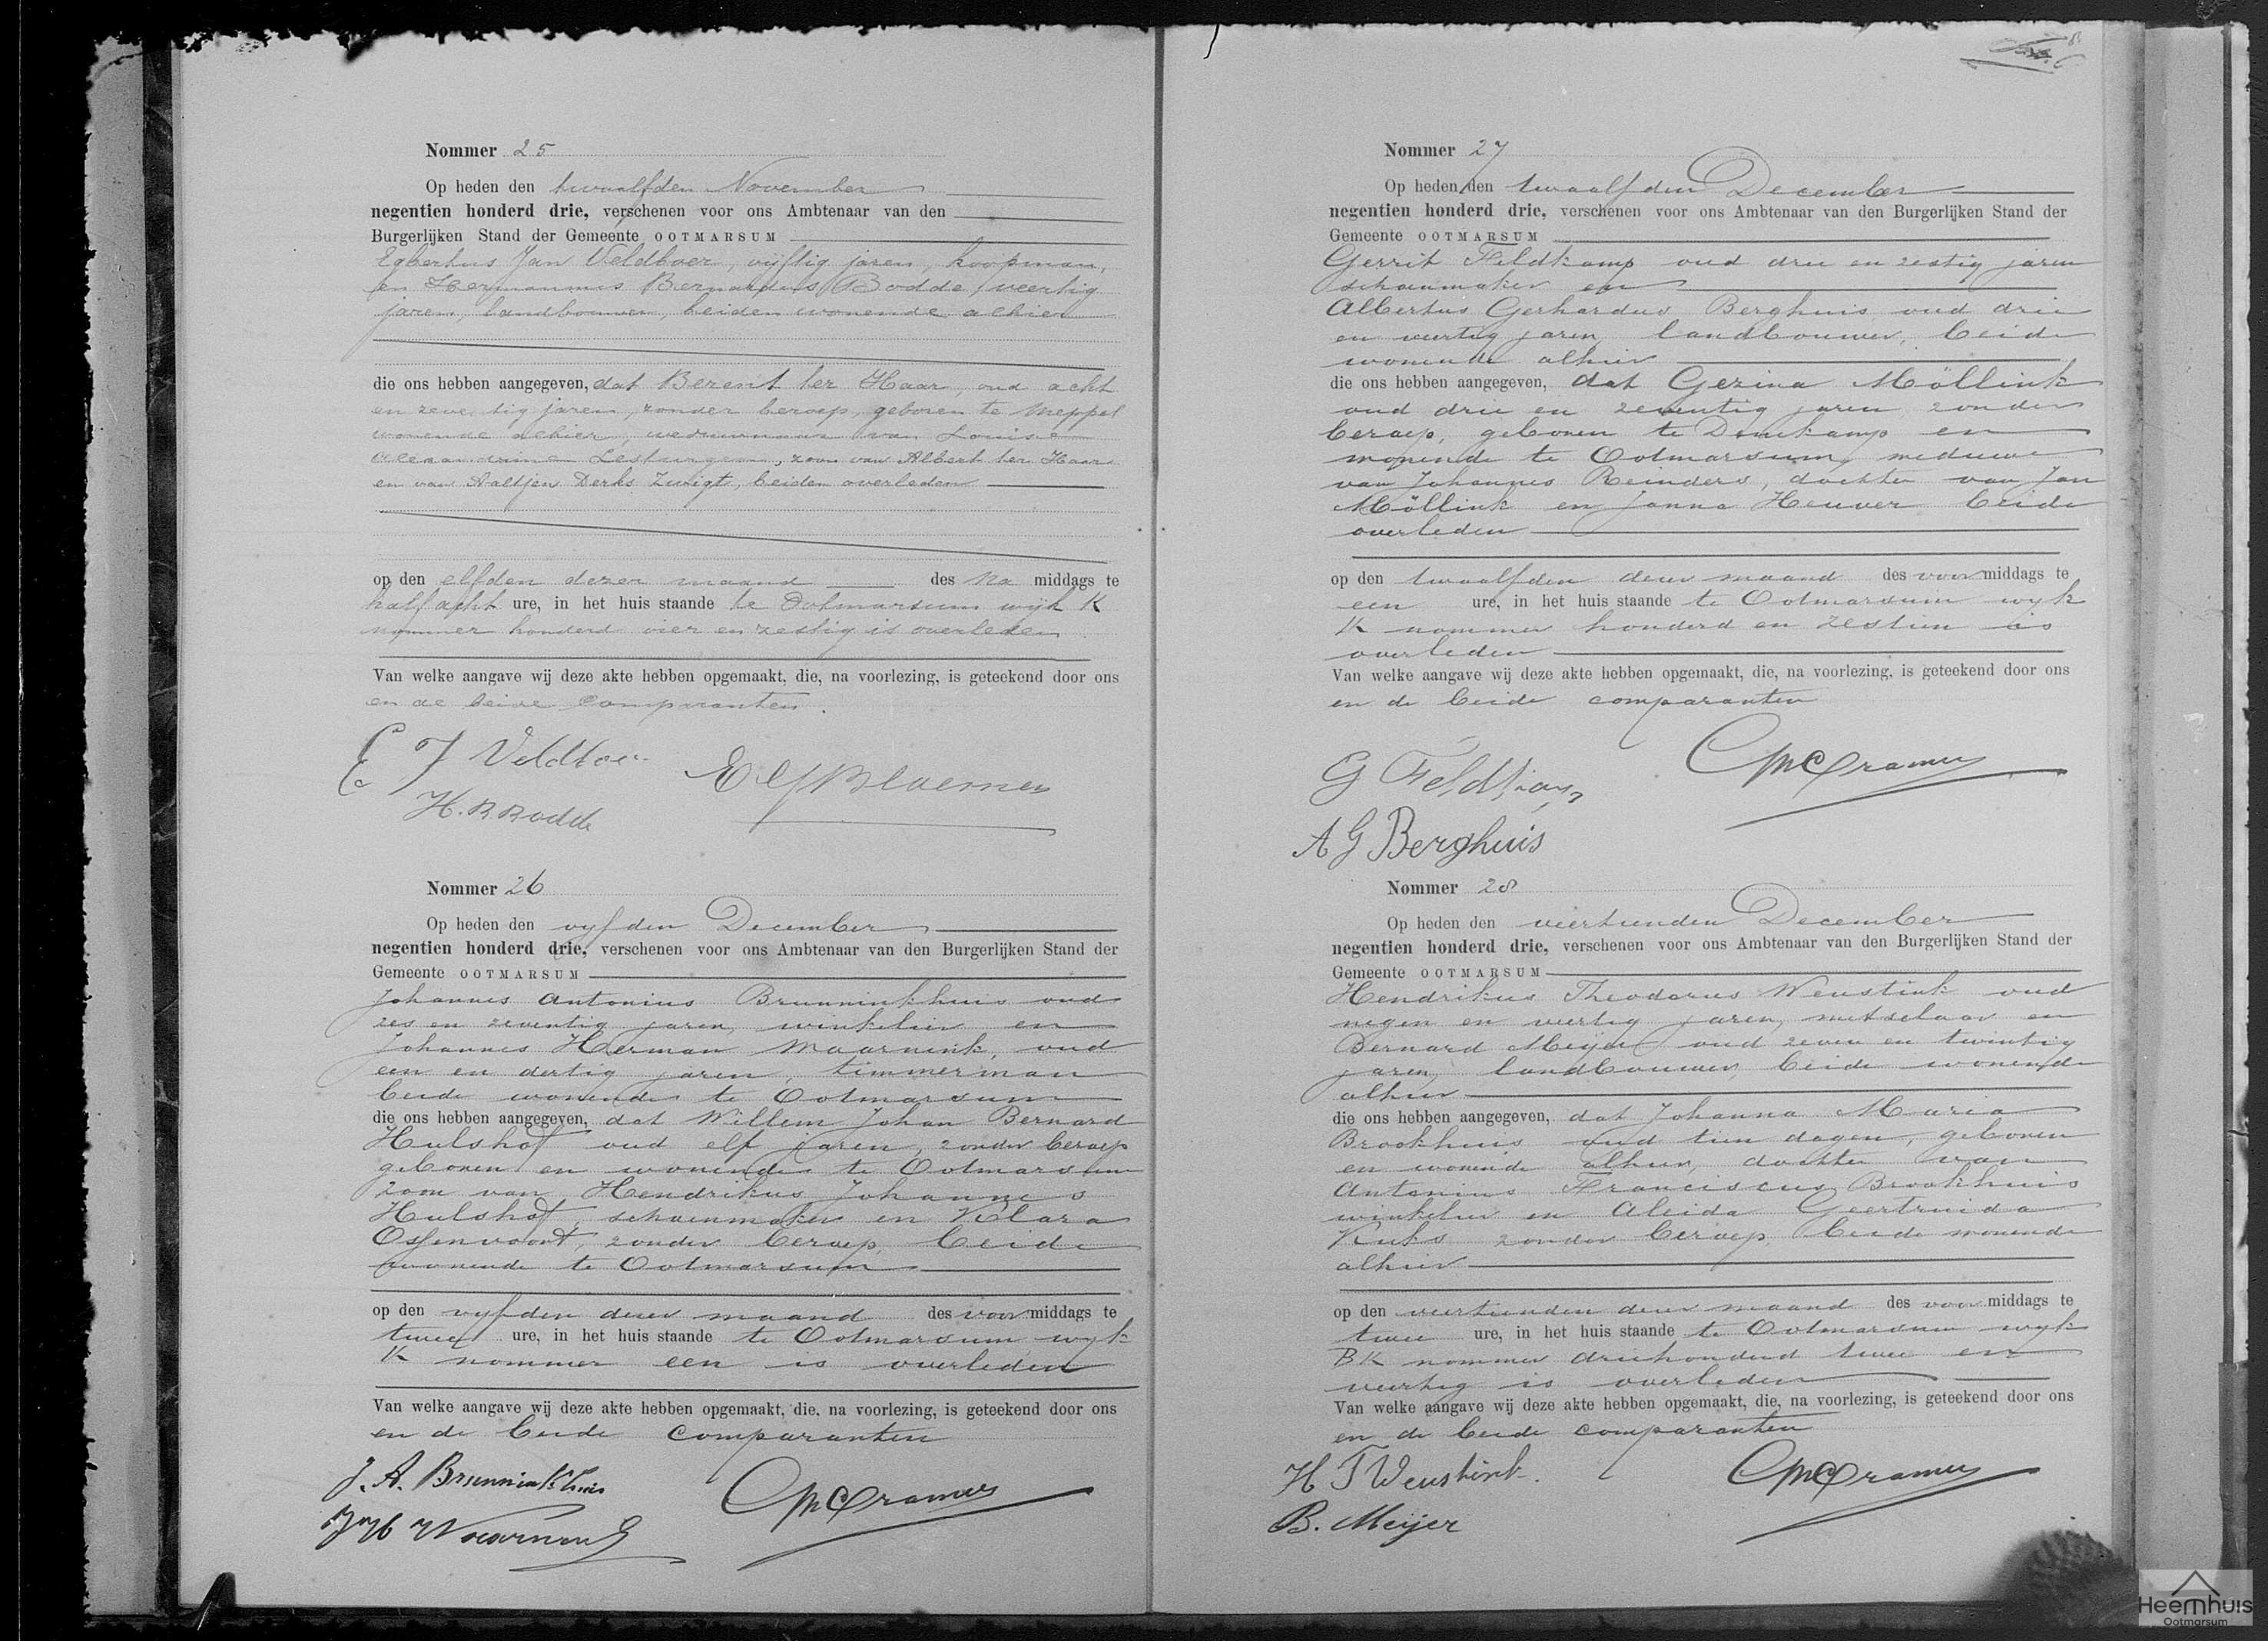 Nommer 25
Op heden den twaalfden November
negentien honderd drie, verschenen voor ons Ambtenaar van den
Burgerlijken Stand der Gemeente OOTMARSUM
Egbertus Jan Veldboer, vijftig jaren, koopman,
en Hermannus Bernardus Bodde, veertig
jaren, landbouwer, beiden wonende alhier
die ons hebben aangegeven, dat Berent ter Haar, oud acht
en zeventig jaren, zonder beroep, geboren te Meppel
wonende alhier, weduwnaar van Louise
Lesturgeon, zoon van Albert ter Haar
en van Aaltjen Derks Zwigt, beiden overleden
op den elfden dezer maand des na middags te
half acht ure, in het huis staande te Ootmarsum wijk K
nommer honderd vier en zestig is overleden
Van welke aangave wij deze akte hebben opgemaakt, die, na voorlezing, is geteekend door ons
en de beide Comparanten.
E J Veldboer
H. B. Bodde
Nommer 26
Op heden den vyfden December
negentien honderd drie, verschenen voor ons Ambtenaar van den Burgerlijken Stand der
Gemeente OOTMARSUM
Johannes Antonius Brunninkhuis oud
zes en zeventig jaren, winkelier en
Johannes Herman Maarnink, oud
een en dertig jaren, timmerman
beide wonende te Ootmarsum
die ons hebben aangegeven, dat Willem Johan Bernard
Hulshof oud elf jaren, zonder beroep
geboren en wonende te Ootmarsum
zoon van Hendrikus Johannes
Hulshof, schoenmaker en Klara
Ossenvoort, zonder beroep, beide
wonende te Ootmarsum
op den vyfden dezer maand des voor middags te
twee ure, in het huis staande te Ootmarsum wyk
K nommer een is overleden
Van welke aangave wij deze akte hebben opgemaakt, die, na voorlezing, is geteekend door ons
en de beide comparanten
J. A. Brunninkhuis
CPM Cramer
J H
Nommer 27
Op heden den twaalfden December
negentien honderd drie, verschenen voor ons Ambtenaar van den Burgerlijken Stand der
Gemeente OOTMARSUM
Gerrit Feldkamp oud drie en zestig jaren
schoenmaker en
Albertus Gerhardus Berghuis oud drie
en veertig jaren, landbouwer, beide
wonende alhier
die ons hebben aangegeven, dat Gezina Möllink
oud drie en zeventig jaren zonder
beroep, geboren te Denekamp en
wonende te Ootmarsum, weduwe
van Johannes Reinders, dochter van Jan
Möllink en Janna Heuver beide
overleden
op den twaalfden dezer maand des voor middags te
een ure, in het huis staande te Ootmarsum wyk
K nommer honderd en zestien is
overleden
Van welke aangave wij deze akte hebben opgemaakt, die, na voorlezing, is geteekend door ons
en de beide comparanten
G Feldkamp
CPM Cramer
A G Berghuis
Nommer 28
Op heden den viertienden December
negentien honderd drie, verschenen voor ons Ambtenaar van den Burgerlijken Stand der
Gemeente OOTMARSUM
Hendrikus Theodorus Weustink oud
negen en veertig jaren, metselaar en
Bernard Meijer oud zeven en twintig
jaren, landbouwer, beide wonende
alhier
die ons hebben aangegeven, dat Johanna Maria
Brookhuis oud tien dagen, geboren
en wonende alhier, dochter van
Antonius Franciscus Brookhuis
winkelier en Aleida Geertruida
Kuks zonder beroep, beide wonende
alhier
op den viertienden dezer maand des voor middags te
twee ure, in het huis staande te Ootmarsum wyk
BK nommer driehonderd twee en
veertig is overleden
Van welke aangave wij deze akte hebben opgemaakt, die, na voorlezing, is geteekend door ons
en de beide comparanten
H T Weustink.
CPM Cramer
B. Meijer
Heemhuis
Ootmarsum